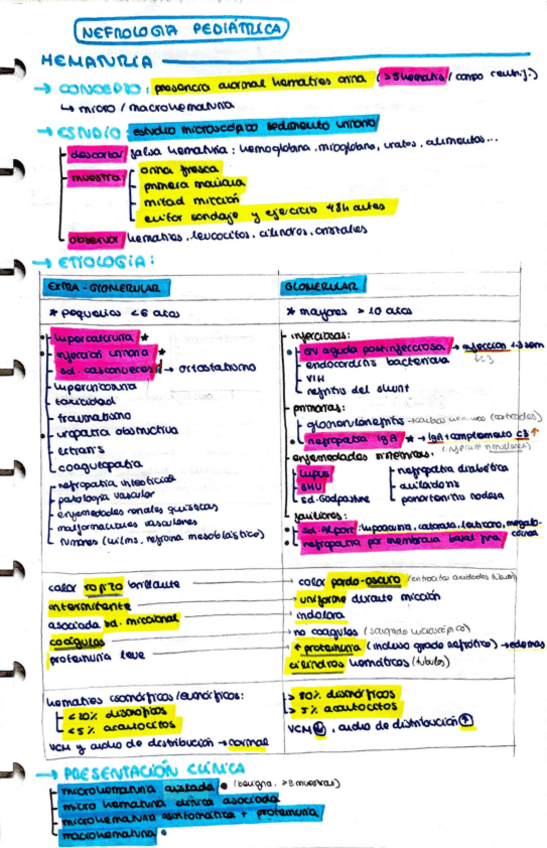 NEFROLOGIA PEDIÁTRICA
HEMATURIA
→ CONCEPTO: presencia anormal hematíes orina (>5 hematíes / campo
↳ micro / macrohematuria
→ ESTUDIO: estudio microscópico sedimento urinario
descartar falsa hematuria: hemoglobina, mioglobina, uratos, alimentos...
muestra: orina fresca
primera mañana
mitad micción
evitar sondaje y ejercicio 48h antes
observar hematíes, leucocitos, cilindros, cristales
→ ETIOLOGÍA:
EXTRA-GLOMERULAR
* pequeños <6 años
hipercalciuria *
infección urinaria *
sd. cascanueces → ortostatismo
hiperuricosuria
toxicidad
traumatismo
uropatía obstructiva
coagulopatía
nefropatía intersticial
patología vascular
enfermedades renales quísticas
malformaciones vasculares
tumores (wilms, nefroma mesoblástico)
GLOMERULAR
* mayores >10 años
- infecciosas:
GN aguda postinfecciosa → infección 1-3 sem
↓C3
endocarditis bacteriana
VIH
nefritis del shunt
- primarias:
glomerulonefritis
nefropatía IgA * → IgA + complemento C3 ↑
- enfermedades sistémicas:
lupus
SHU
sd. Goodpasture
nefropatía diabética
amiloidosis
panarteritis nodosa
- familiares:
sd. Alport: hipoacusia, catarata, lenticono,
nefropatía por membrana basal fina
color rojizo brillante
intermitente
asociada sd. miccional
coágulos
proteinuria leve
→ color pardo-oscuro
→ uniforme durante micción
→ indolora
→ no coágulos (sangrado microscópico)
↑ proteinuria (incluso grado nefrótico) → edemas
cilindros hemáticos (túbulos)
hematíes isomórficos / eumórficos:
<20% dismórficos
<5% acantocitos
VCM y ancho de distribución → normal
>80% dismórficos
>5% acantocitos
VCM ↓, ancho de distribución ↑
→ PRESENTACIÓN CLÍNICA
microhematuria aislada (benigna, >3 muestras)
micro hematuria clínica asociada
microhematuria asintomática + proteinuria
macrohematuria